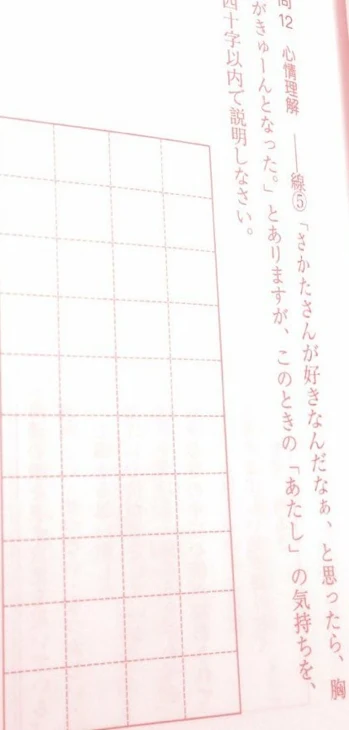 問12 心情理解 ――線⑤「さかたさんが好きなんだなぁ、と思ったら、胸
がきゅーんとなった。」とありますが、このときの「あたし」の気持ちを、
四十字以内で説明しなさい。